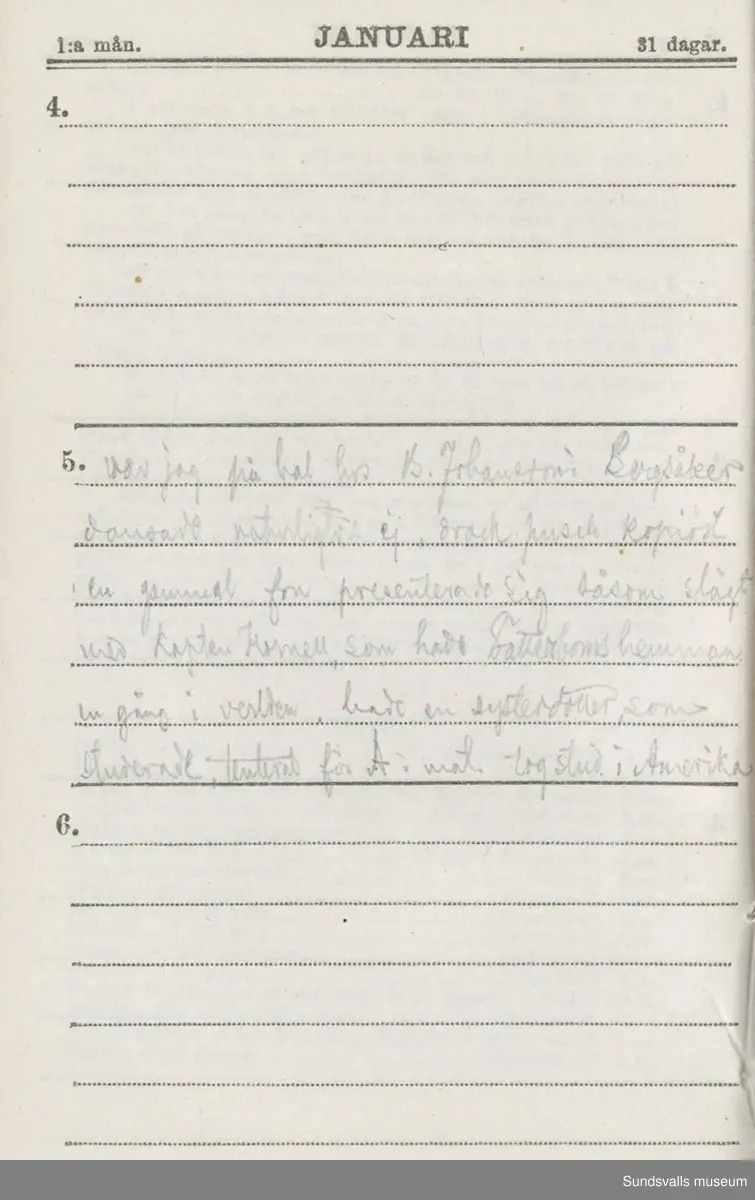 1:a mån. JANUARI 31 dagar.
4.
5. var jag på bal hos B. Johansson's Bergsåker
dansade naturligtvis ej, drack pusch kopiöst
en gammal fru presenterade sig såsom slägt
med Kapten Kornell, som hade Fatterboms hemman
en gång i verlden, hade en systerdotter som
studerade, tenterat för A i mat. tog stud. i Amerika
6.
Sundsvalls museum